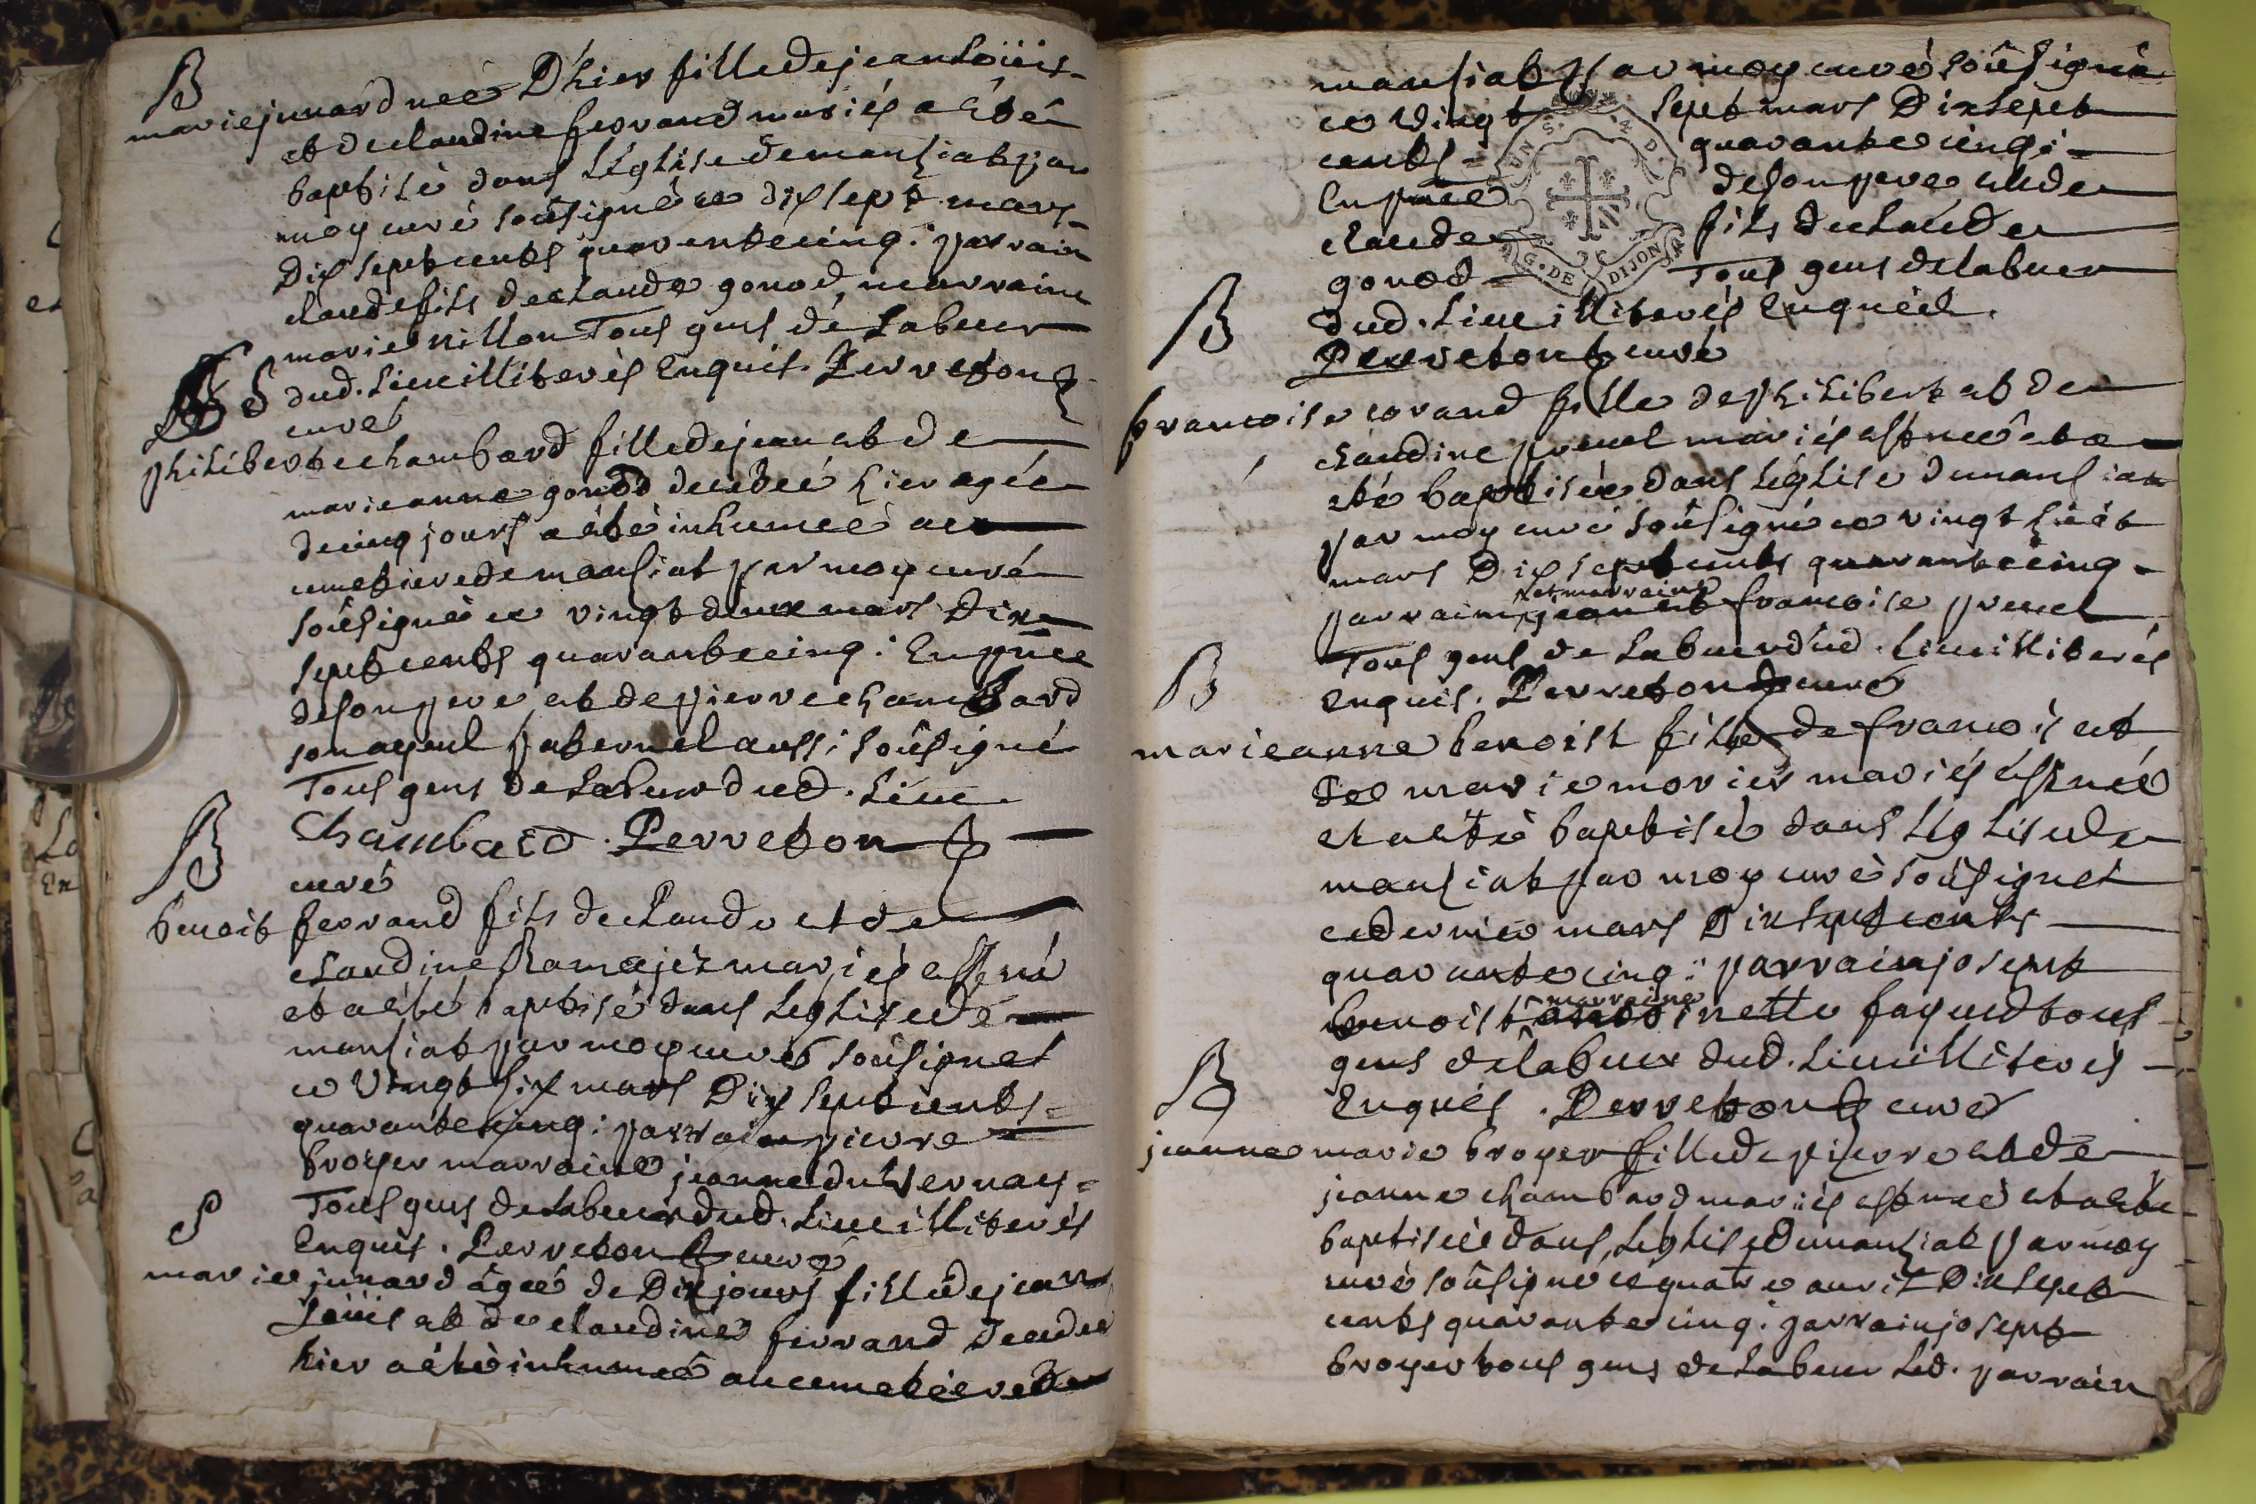 B
marie junard née D'hier fille de jean Loüis
et de claudine ferrand mariés a été
baptisé dans L'église de mansiat par
moy curé soûsigné ce dix sept mars
Dix sept cents quarante cinq: parrain
claude fils de claude gonod marraine
marie nillon Tous gens de Labeur
dud. Lieu illiterés Enquis. Perreton
curé
S
philiberte chambard fille de jean et de
marieanne gonod decedeé hier agée
de cinq jours a été inhumeé au
cimetiere de mansiat par moy curé
soûsigné ce vingt deux mars Dix
sept cents quarante cinq: En pnce
de son pere et de pierre chambard
son ayeul paternel aussi soûsigné
Tous gens de Labeur dud. Lieu.
Chambard. Perreton
curé
B
benoit ferrand fils de claude et de
claudine Ramejéz mariés est né
et a été baptisé dans L'église de
mansiat par moy curé soûsigné
ce vingt six mars Dix sept cents
quarante cinq: parrain pierre
broyer marraine jeanne duvernay
Tous gens de Labeur dud. Lieu illiterés
Enquis. Perreton curé
S
marie junard âgeé de Dix jours fille de jean
Loüis et de claudine ferrand decedeé
hier a été inhumeé au cemetiére de
mansiat par moy curé soûsigné
ce vingt sept mars Dix sept
cents quarante cinq:
En pnce de son pere et de
claude fils de claude
gonod Tous gens de labeur
dud. Lieu illiterés Enquis.
Perreton curé
UNS. 4 D.
G. DE DIJON
B
francoise corand fille de philibert et de
claudine preuel mariés est neé et a
eté baptisée dans L'église de mansiat
par moy curé soûsigné ce vingt huit
mars Dix sept cents quarante cinq
parrain jean et marraine francoise preuel
Tous gens de Labeur dud. Lieu illiterés
Enquis. Perreton curé
B
marieanne benoist fille de francois et
de marie morier mariés est née
et a été baptisée dans L'église de
mansiat par moy curé soûsigné
ce dernier mars Dix sept cents
quarante cinq: parrain joseph
benoist marraine antoinette fayued tous
gens de labeur dud. Lieu illiterés
Enquis. Perreton curé
B
jeanne marie broyer fille de pierre et de
jeanne chambard mariés est neé et a été
baptisée dans L'église de mansiat par moy
curé soûsigné ce quatre avril Dix sept
cents quarante cinq: parrain joseph
broyer tous gens de Labeur Led. parrain